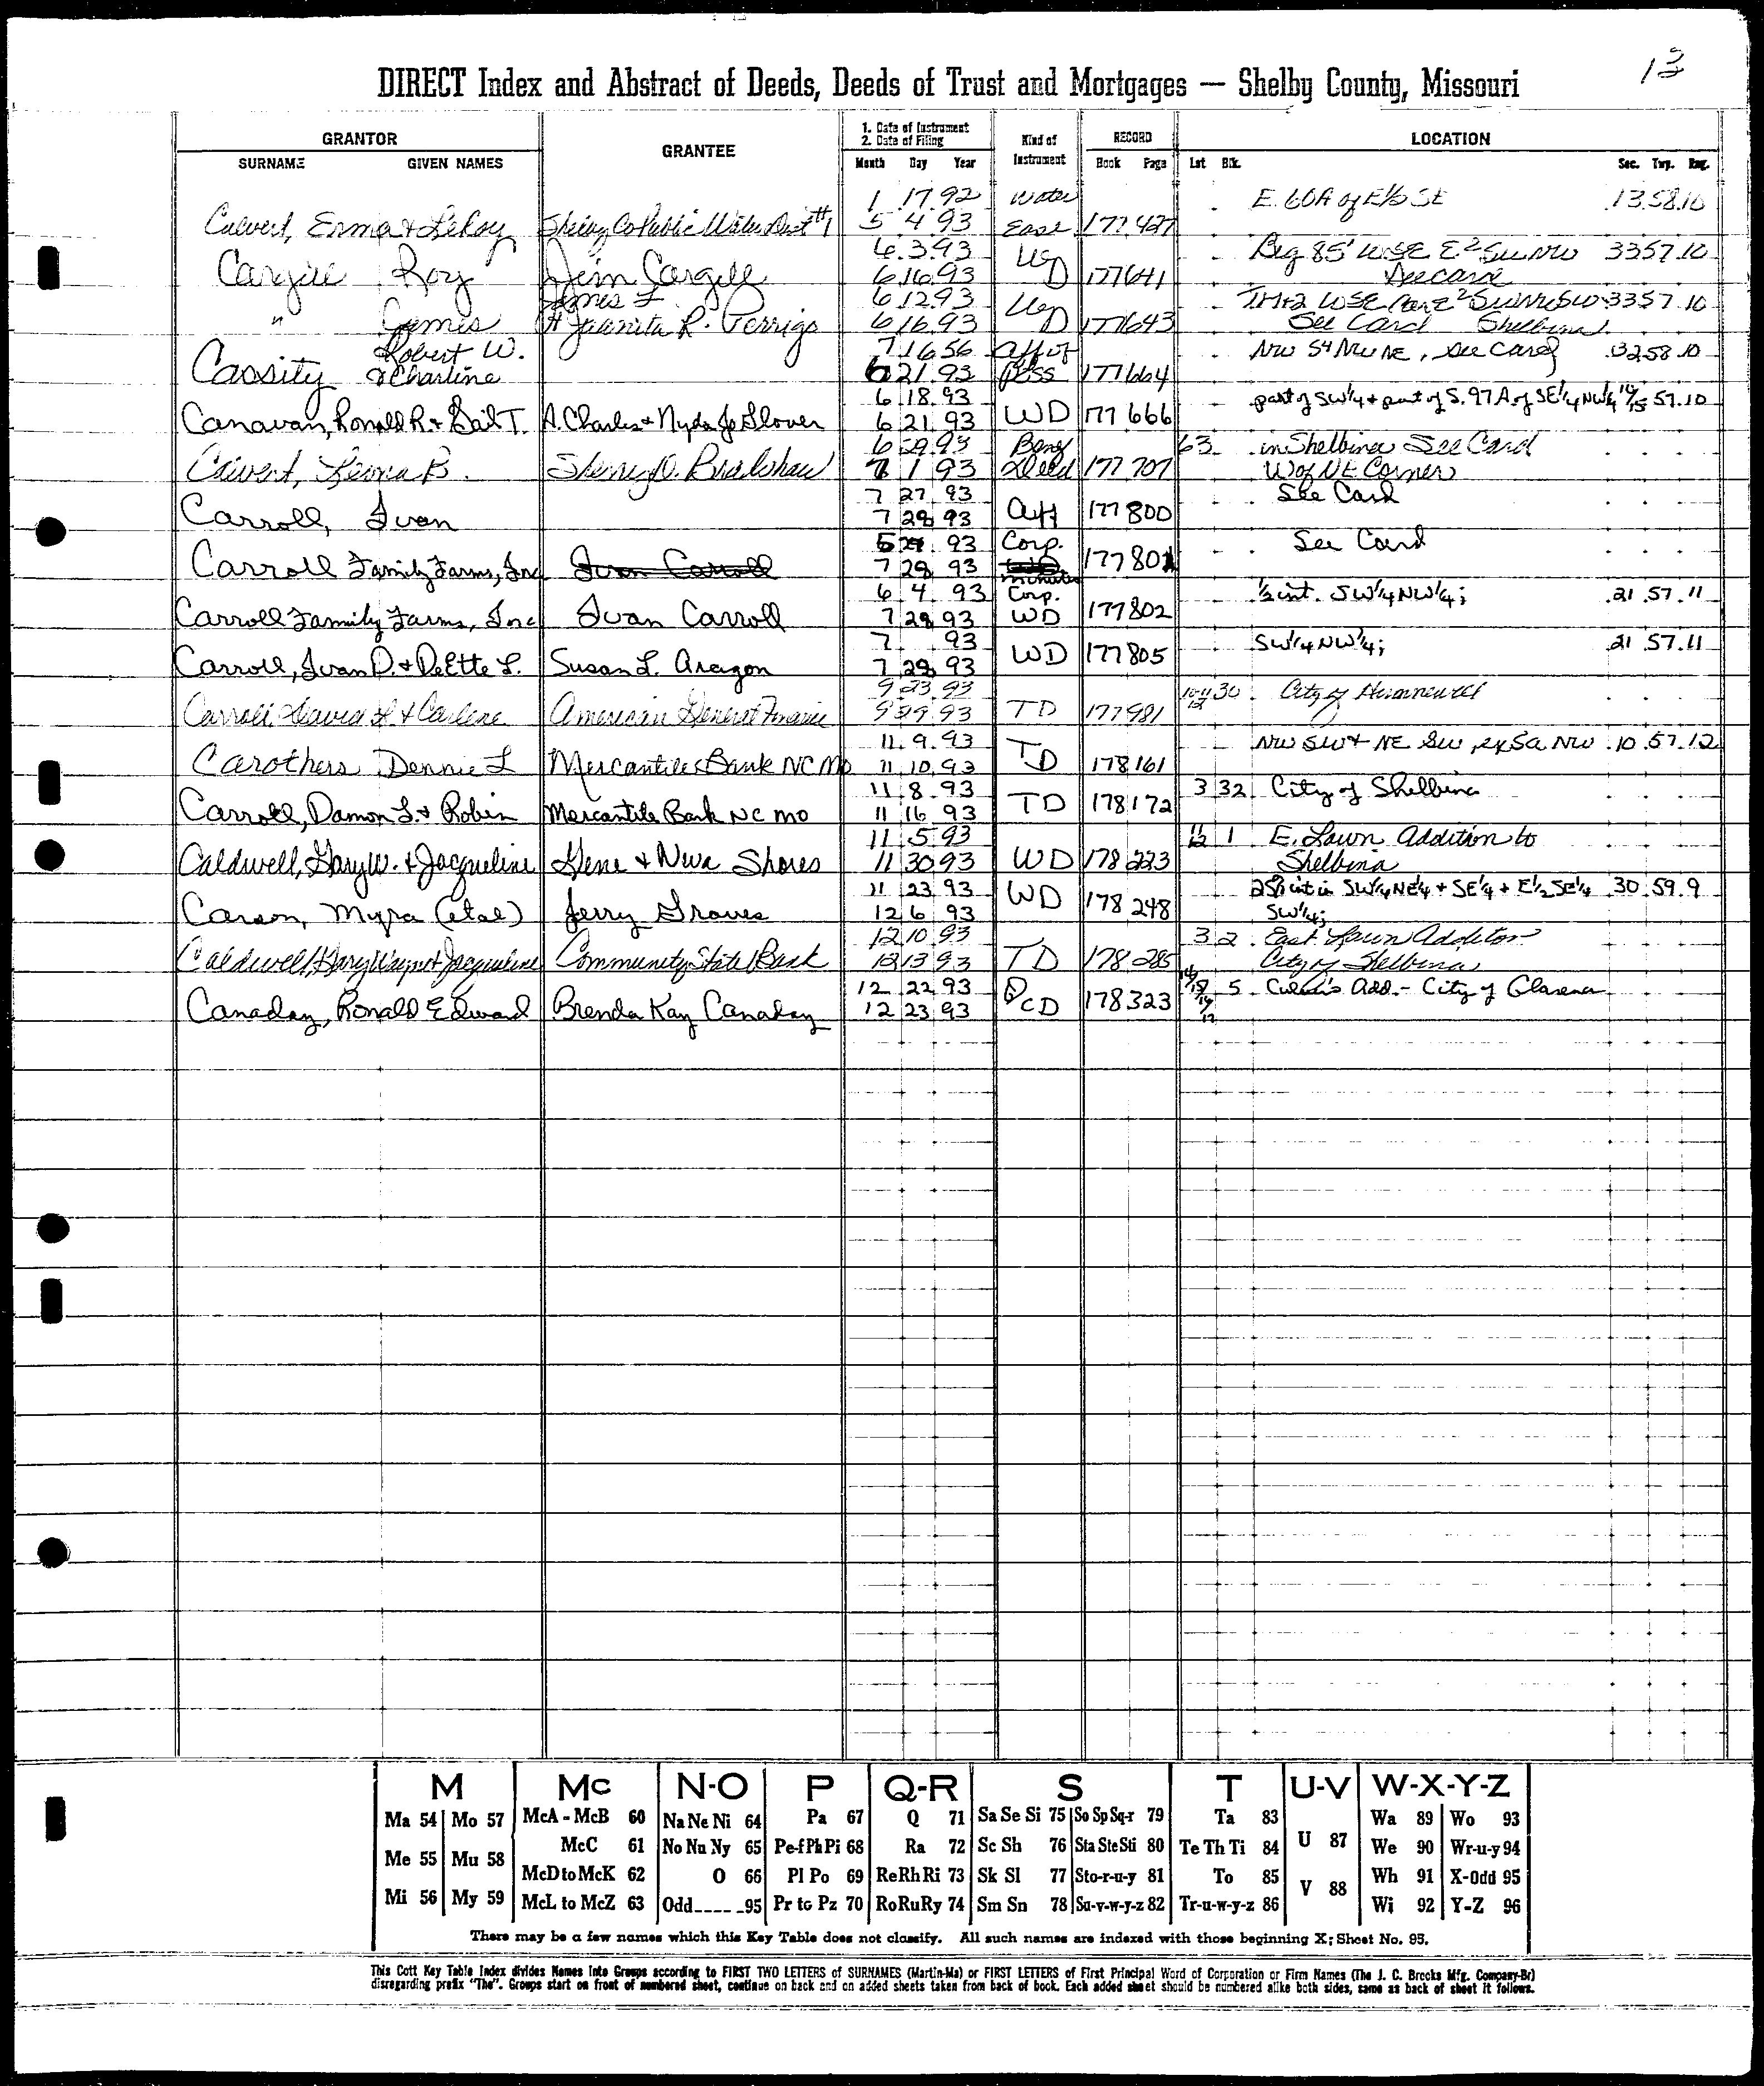 13
DIRECT Index and Abstract of Deeds, Deeds of Trust and Mortgages — Shelby County, Missouri
GRANTOR GRANTEE 1. Date of Instrument 2. Date of Filing Kind of Instrument RECORD LOCATION
SURNAME GIVEN NAMES Month Day Year Book Page Lot Blk. Sec. Twp. Rng.
1 17 92 Water E. 60A of E½ SE 13 58 10
Calvert, Erma & LeRoy Shelby Co Public Water Dist #1 5 4 93 Ease 177 427
6 3 93 WD Beg 85' W SE E² SW NW 33 57 10
Cargill Roy Jim Cargill 6 16 93 177 641 See card
James L 6 12 93 WD 33 57 10
" James & Juanita R. Perrigo 6 16 93 177 643 See Card Shelbina
Robert W. 7 16 56 Aff of NW S4 NW NE, See Card 32 58 10
Cassity & Charline 6 21 93 Poss 177 664
6 18 93 part of SW¼ & part of S. 97 A. of SE¼ NW¼ 57.10
Canavan, Ronald R. & Gail T. A. Charles & Nyda Jo Glover 6 21 93 WD 177 666
6 29 93 Benf 63 in Shelbina See Card
Calvert, Leona B. Sherry D. Bradshaw 7 1 93 Deed 177 707 W of NE Corner
7 27 93 See Card
Carroll, Ivan 7 28 93 Aff 177 800
5 93 Corp. See Card
Carroll Family Farms, Inc Ivan Carroll 7 28 93 minutes 177 801
6 4 93 Corp. ½ int. SW¼ NW¼; 21 57 11
Carroll Family Farms, Inc Ivan Carroll 7 28 93 WD 177 802
7 93 SW¼ NW¼; 21 57 11
Carroll, Ivan D. & DeEtte L. Susan L. Aragon 7 28 93 WD 177 805
9 23 93 10-11 12 30 City of Hunnewell
Carroll, David H. & Carlene American General Finance 9 29 93 TD 177 981
11 9 93 NW SW & NE SW, ex 5a NW 10 57 12
Carothers Dennie L Mercantile Bank NC Mo 11 10 93 TD 178 161
11 8 93 3 32 City of Shelbina
Carroll, Damon L. & Robin Mercantile Bank NC MO 11 16 93 TD 178 172
11 5 93 1 E. Lawn Addition to
Caldwell, Gary W. & Jacqueline Gene & Neva Shores 11 30 93 WD 178 223 Shelbina
11 23 93 int in SW¼ NE¼ + SE¼ + E½ SE¼ 30 59 9
Carson, Myra (etal) Jerry Graves 12 6 93 WD 178 248 SW¼;
12 10 93 3 2 East Lawn Addition
Caldwell, Gary Wayne & Jacqueline Community State Bank 12 13 93 TD 178 285 City of Shelbina
12 22 93 5 Add. - City of Clarence
Canaday, Ronald Edward Brenda Kay Canaday 12 23 93 QCD 178 323
M Mc N-O P Q-R S T U-V W-X-Y-Z
Ma 54 Mo 57 McA - McB 60 Na Ne Ni 64 Pa 67 Q 71 Sa Se Si 75 So Sp Sq-r 79 Ta 83 Wa 89 Wo 93
McC 61 No Nu Ny 65 Pe-f Ph Pi 68 Ra 72 Sc Sh 76 Sta Ste Sti 80 Te Th Ti 84 U 87 We 90 Wr-u-y 94
Me 55 Mu 58 McD to McK 62 O 66 Pl Po 69 Re Rh Ri 73 Sk Sl 77 Sto-r-u-y 81 To 85 V 88 Wh 91 X-Odd 95
Mi 56 My 59 McL to McZ 63 Odd____95 Pr to Pz 70 Ro Ru Ry 74 Sm Sn 78 Su-v-w-y-z 82 Tr-u-w-y-z 86 Wi 92 Y-Z 96
There may be a few names which this Key Table does not classify. All such names are indexed with those beginning X; Sheet No. 95.
This Cott Key Table Index divides Names Into Groups according to FIRST TWO LETTERS of SURNAMES (Martin-Ma) or FIRST LETTERS of First Principal Word of Corporation or Firm Names (The J. C. Brooks Mfg. Company-Br)
disregarding prefix "The". Groups start on front of numbered sheet, continue on back and on added sheets taken from back of book. Each added sheet should be numbered alike both sides, same as back of sheet it follows.